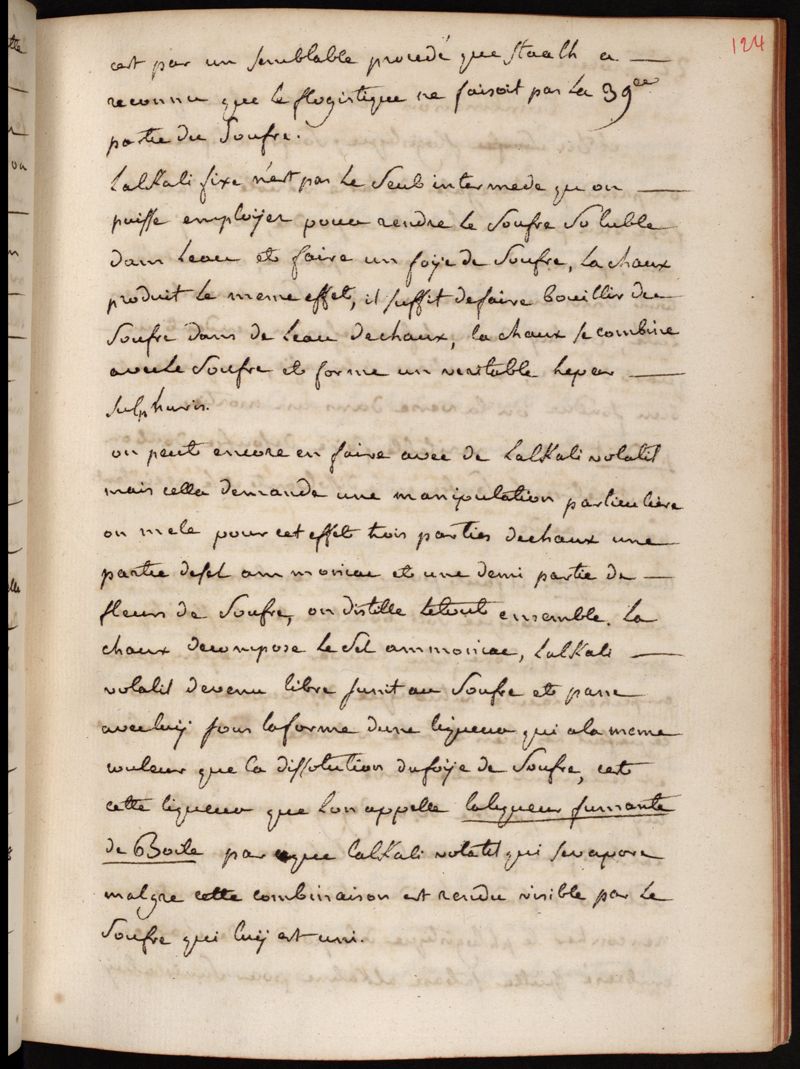 124
cest par un semblable procedé que Staalh a —
reconnu que le flogistique ne faisoit pas La 39ee
partie du Soufre.
LalKali fixe n'est pas Le Seul intermede qu on —
puisse employer pour rendre le Soufre Soluble
dans Leau et faire un foÿe de Soufre, La chaux
produit Le meme effet, il suffit defaire bouillir du
Soufre dans de Leau dechaux, la chaux se combine
avecle Soufre et forme un veritable hepar —
Sulphuris.
on peut encore en faire avec de LalKali volatil
mais cella demande une manipulation particuliere
on mele pour cet effet trois parties dechaux une
partie desel ammoniac et une demi partie de —
fleurs de Soufre, on distille letout ensemble. La
chaux decompose Le Sel ammoniac, LalKali —
volatil devenu libre sunit au Soufre et passe
avecluÿ sous laforme dune liqueur qui a la meme
couleur que la dissolution dufoÿe de Soufre, cest
cette liqueur que Lon appelle laliqueur fumante
de Boile par que lalKali volatil qui sevapore
malgre cette combinaison est rendu visible par Le
Soufre qui luÿ est uni.